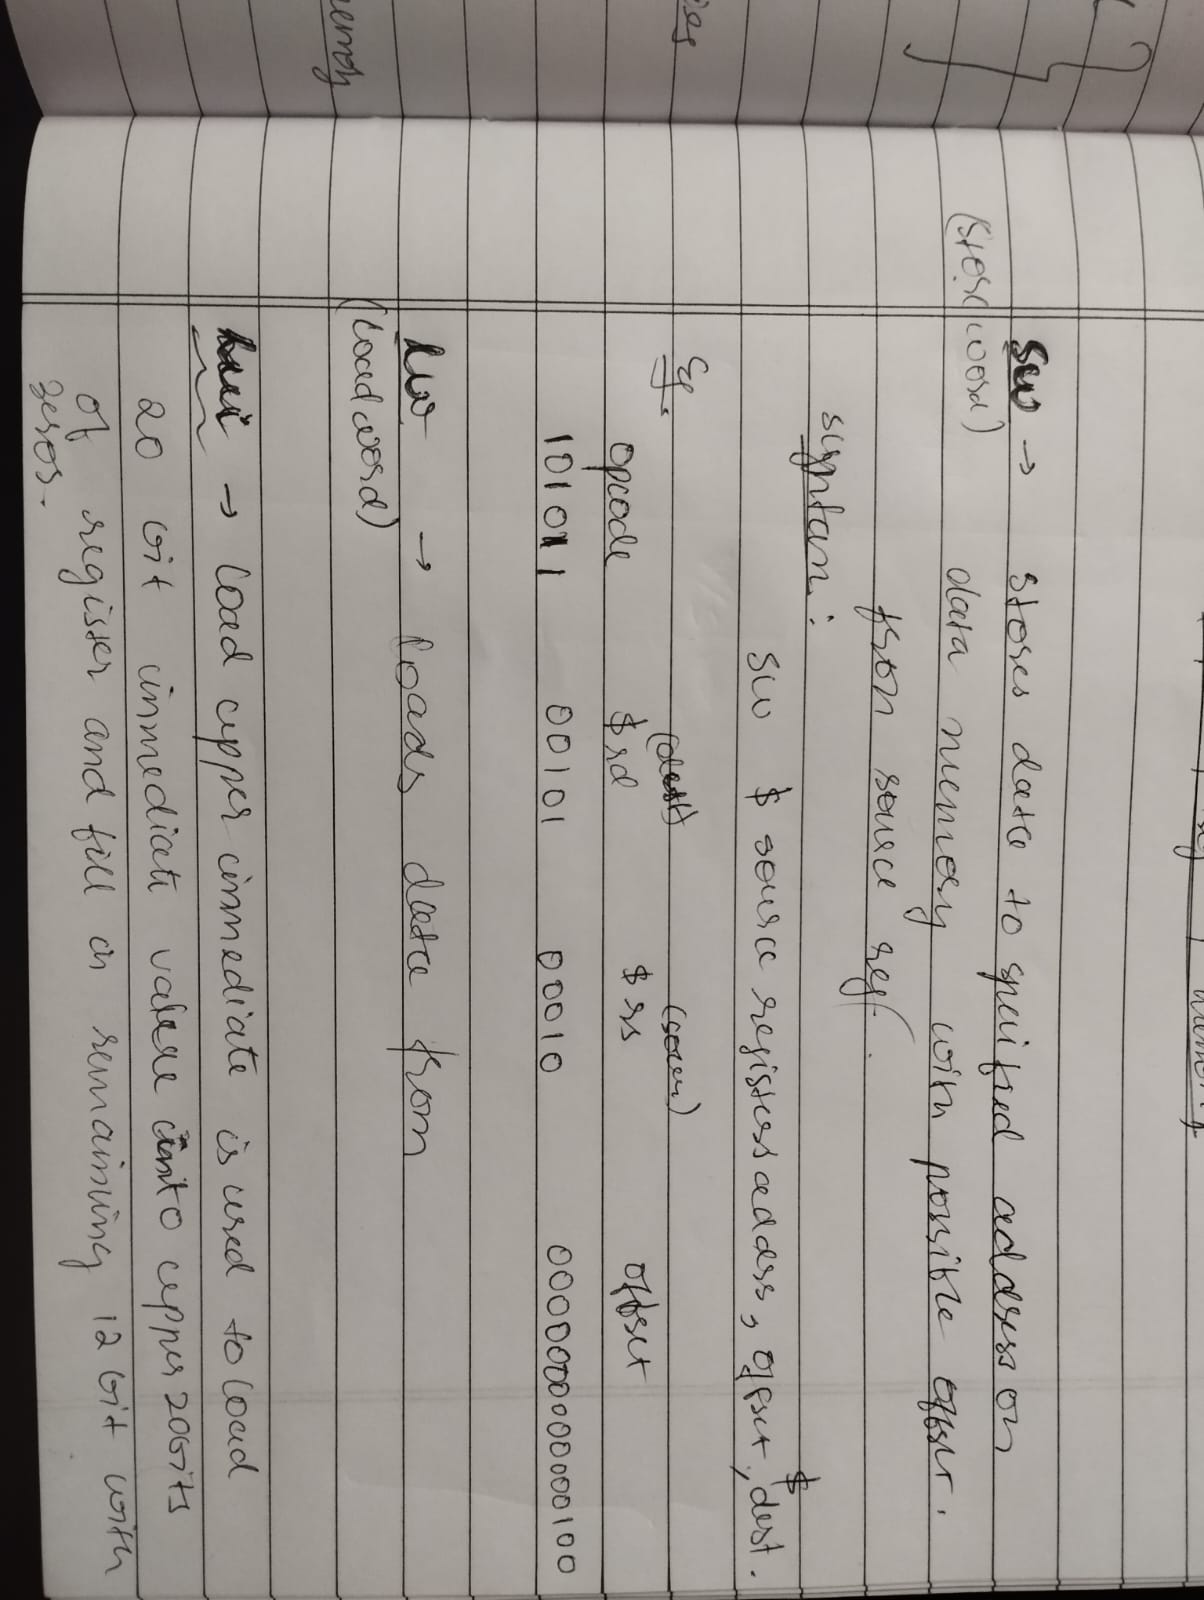 memory
sw → stores data to specified address on
(store word)
data memory with possible offset.
from source reg.
syntax:
sw $ source registers address, offset, $dest.
Eg.
(dest) (source)
opcode $rd $rs offset
101011 00101 00010 0000000000000100
lw → loads data from
(load word)
lui → load upper immediate is used to load
20 bit immediate value into upper 20bits
of register and fill in remaining 12 bit with
zeros.
memory